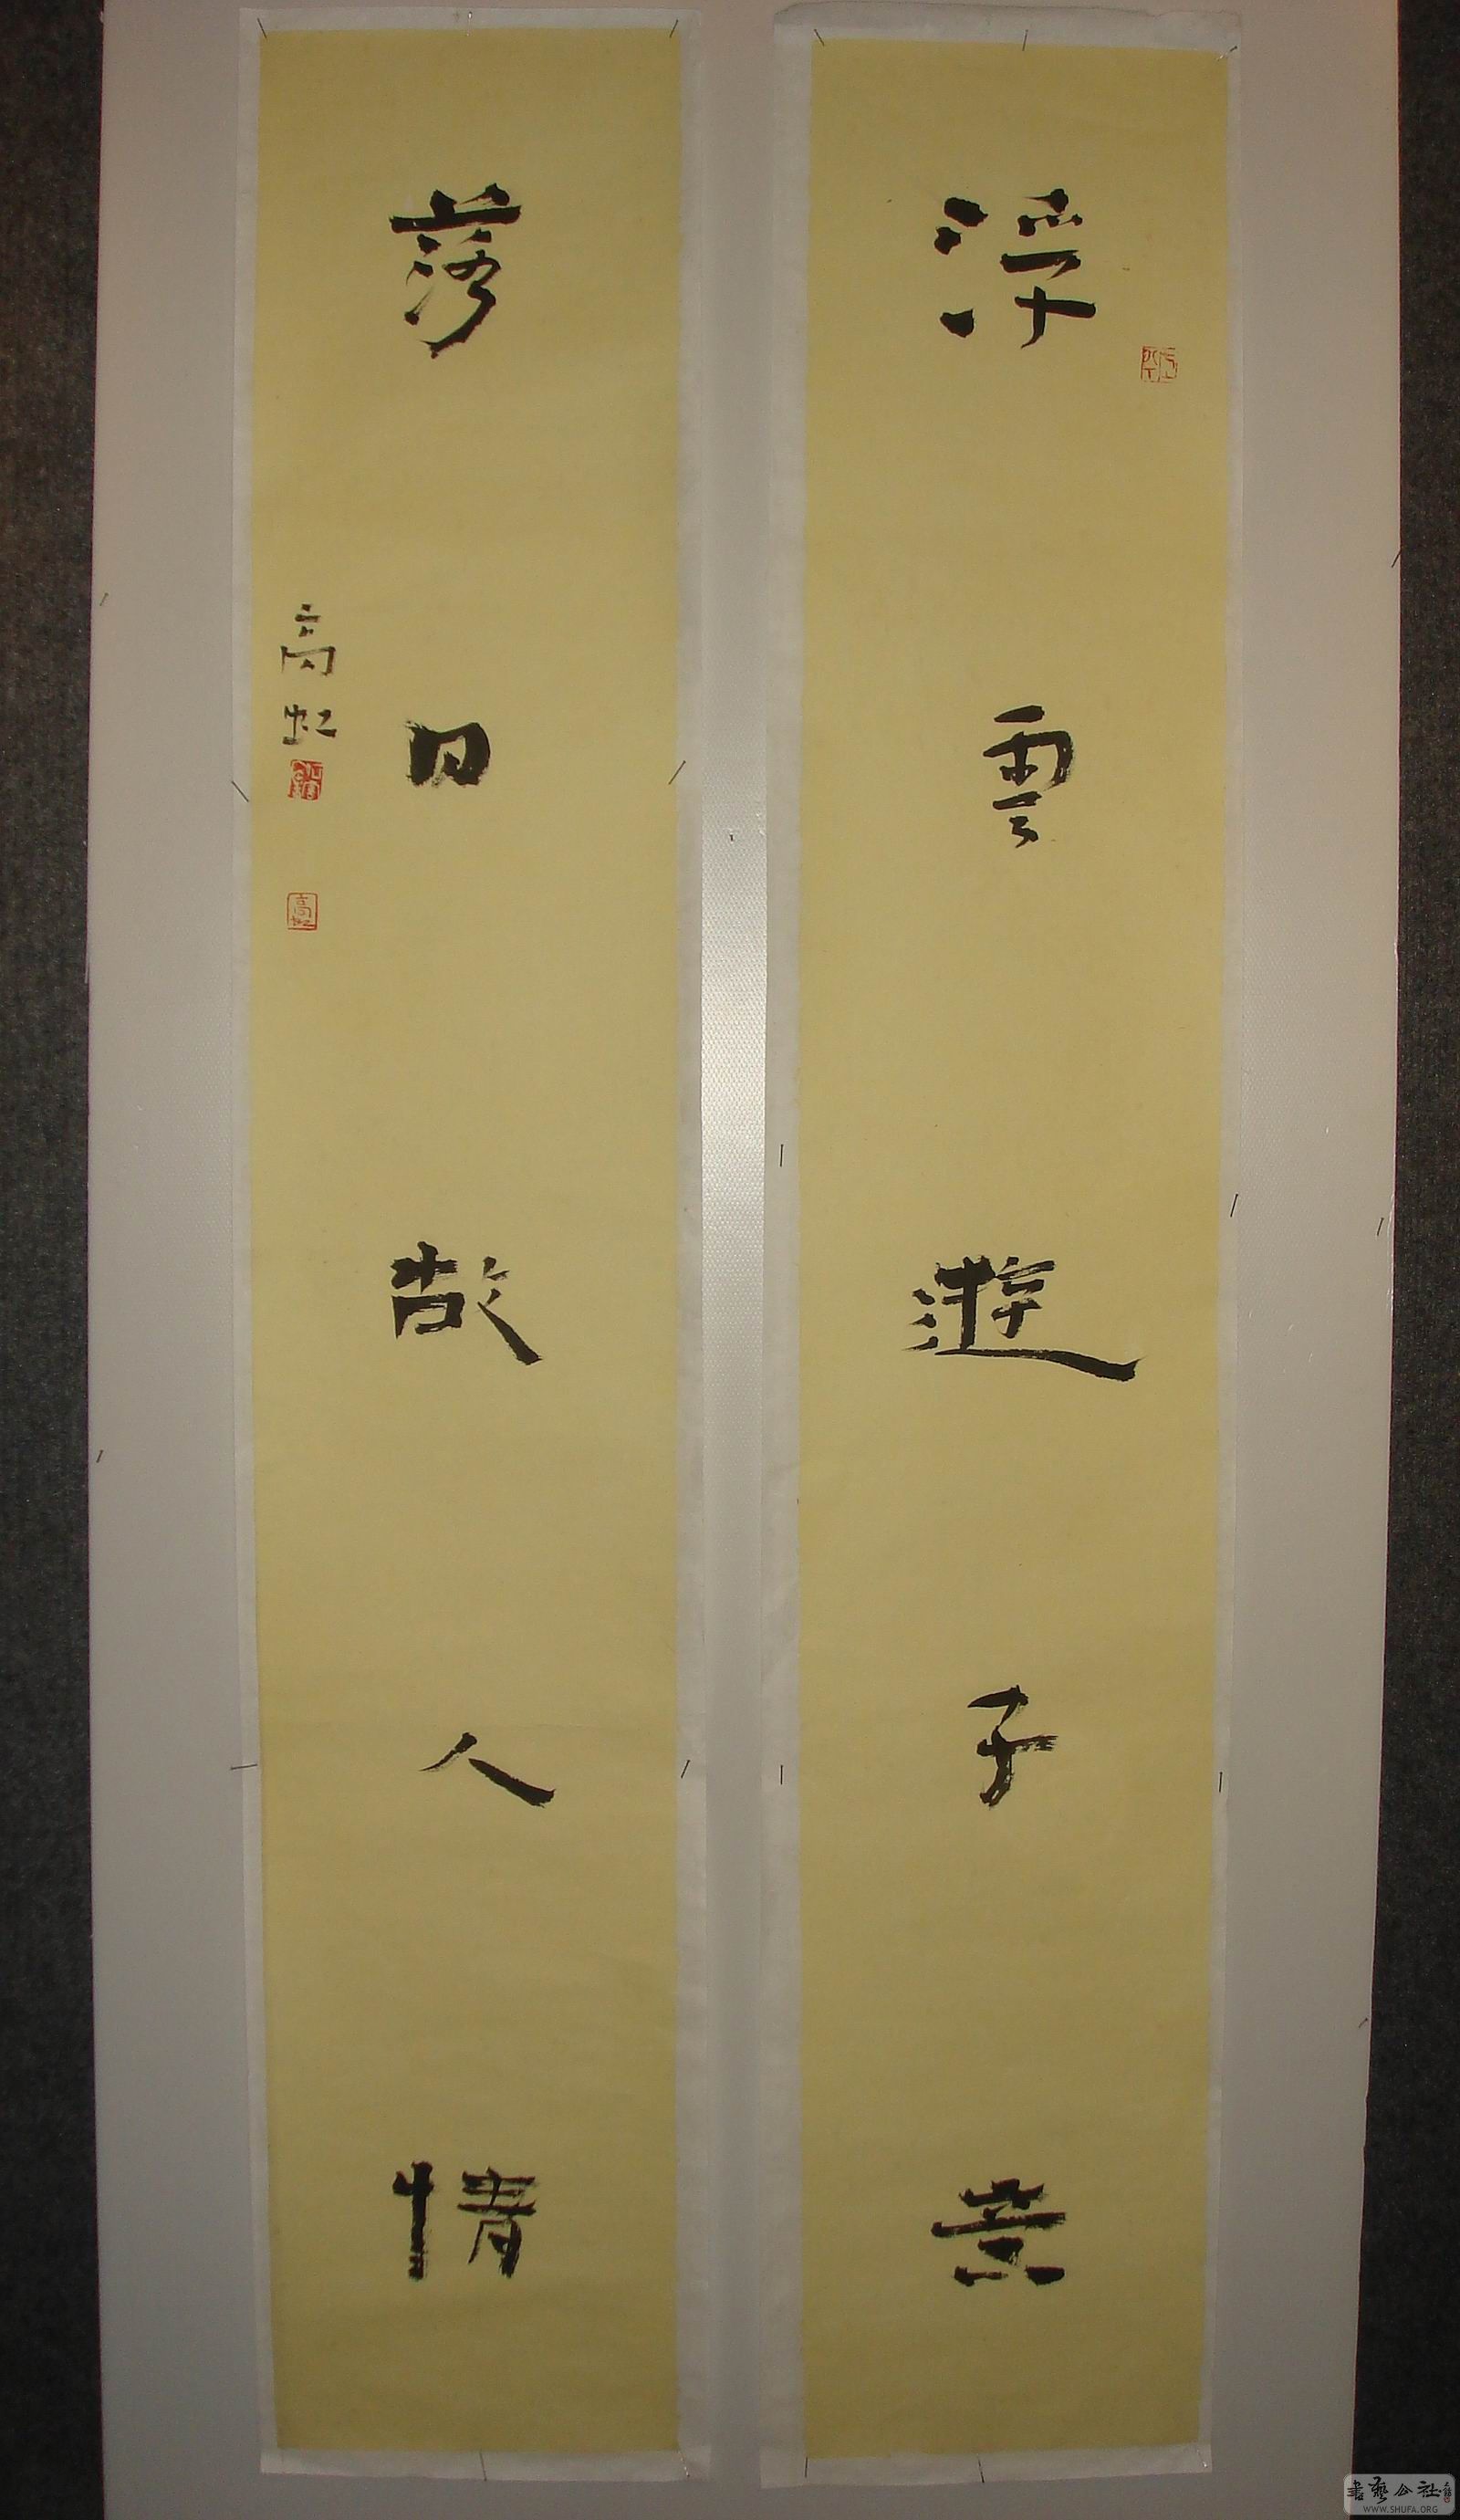 浮雲遊子意
落日故人情
高虹
高虹
書藝公社
WWW.SHUFA.ORG